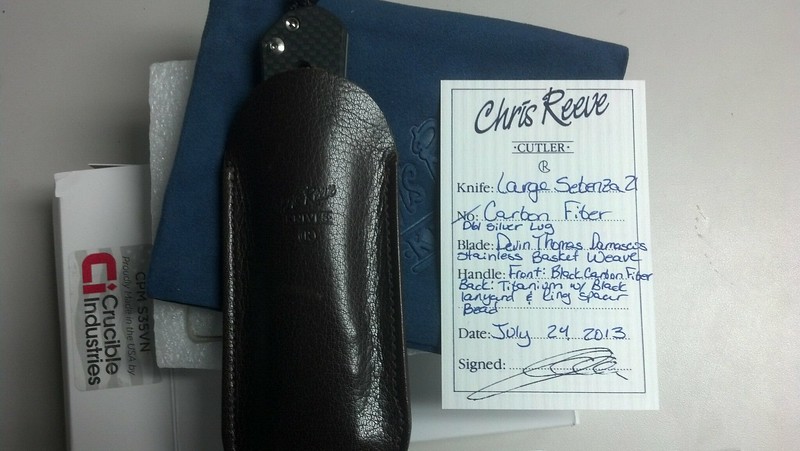 Chris Reeve
·CUTLER·
®
Knife: Large Sebenza 21
No: Carbon Fiber
Dbl Silver Lug
Blade: Devin Thomas Damascus
Stainless Basket Weave
Handle: Front: Black Carbon Fiber
Back: Titanium w/ Black
lanyard & Ring Spacer
Bead
Date: July 24 2013
Signed:
CPM S35VN
Proudly Made in the USA by
Crucible
Industries